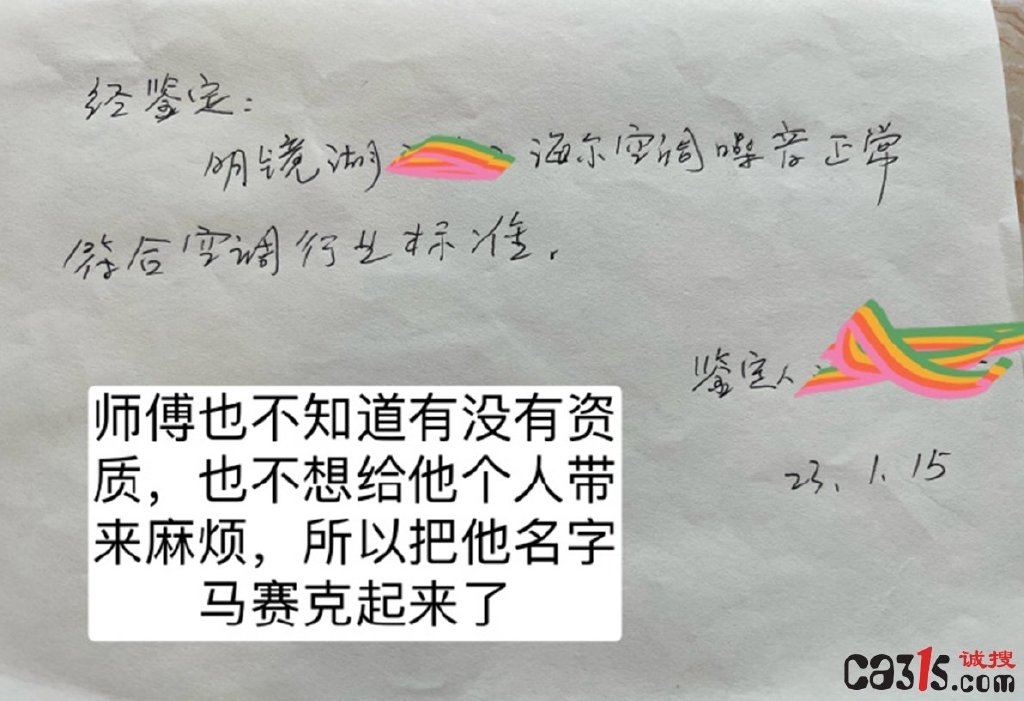 经鉴定：
明镜湖 海尔空调噪音正常
符合空调行业标准.
鉴定人：
23. 1. 15
师傅也不知道有没有资
质，也不想给他个人带
来麻烦，所以把他名字
马赛克起来了
ca315诚搜
.com